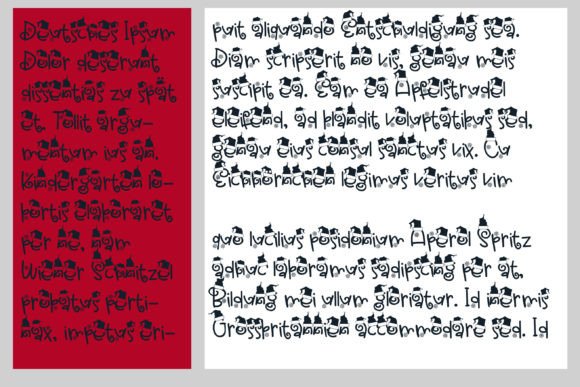 Deutsches Ipsum
Dolor deserunt
dissentias zu spät
et. Tollit argu-
mentum ius an.
Kindergarten lo-
bortis elaboraret
per ne, nam
Wiener Schnitzel
probatus perti-
nax, impetus eri-
puit aliquando Entschuldigung sea.
Diam scripserit no vis, meis
suscipit ea. Eam ea Apfelstrudel
eleifend, ad blandit voluptatibus sed,
eius consul sanctus vix. Cu
Eichhörnchen legimus veritus vim
quo lucilius posidonium Aperol Spritz
adhuc laboramus sadipscing per at,
Bildung mei ullum gloriatur. Id inermis
Grossbritannien accommodare sed. Id